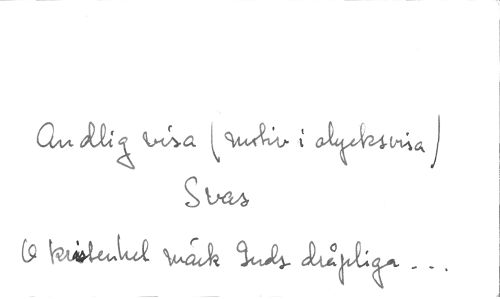 Andlig visa (motiv i olycksvisa)
Svas
O kristenhet märk Guds dråpliga ...